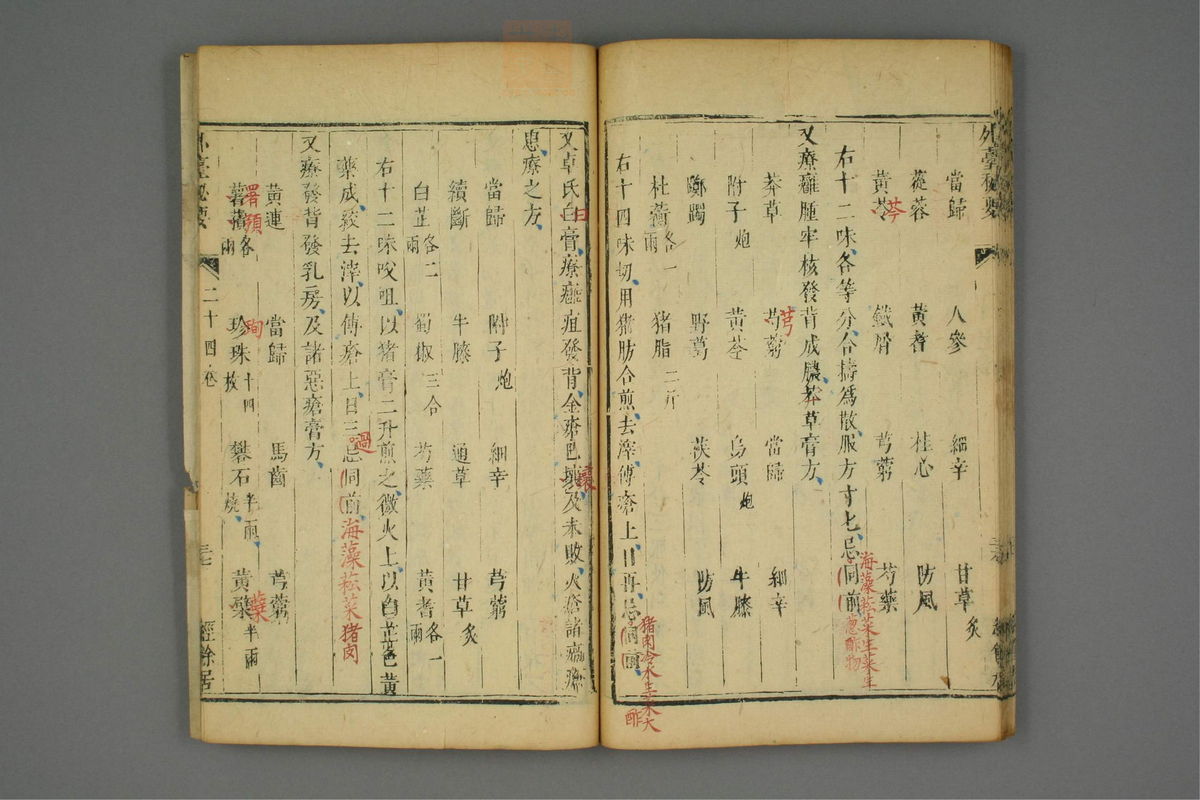 外臺秘要
當歸 人參 細辛 甘草炙
蓯蓉 黃耆 桂心 防風
黃芩 鐵屑 芎藭 芍藥
芩
右十二味各等分合擣爲散服方寸匕忌同前
海藻菘菜生菜生
葱酢物
又療癰腫牢核發背成膿莽草膏方
莽草 芎藭 當歸 細辛
芎
附子炮 黃芩 烏頭炮 牛膝
躑躅 野葛 茯苓 防風
杜蘅各一兩 猪脂二斤
右十四味切用猪肪合煎去滓傅瘡上日再忌同前
猪肉冷水生菜大
酢
又卓氏白膏療癰疽發背金瘡已壞及未敗火瘡諸癌瘮
患療之方
當歸 附子炮 細辛 芎藭
續斷 牛膝 通草 甘草炙
白芷各二兩 蜀椒三合 芍藥 黃耆各一兩
右十二味㕮咀以猪膏二升煎之微火上以白芷色黃
藥成絞去滓以傅瘡上日三忌同前
過
海藻菘菜猪肉
又療發背發乳房及諸惡瘡膏方
黃連 當歸 馬齒 芎藭
薯蕷各兩 珍珠十四枚 礬石半兩燒 黃蘗半兩
外臺秘要 二十四卷 經餘居